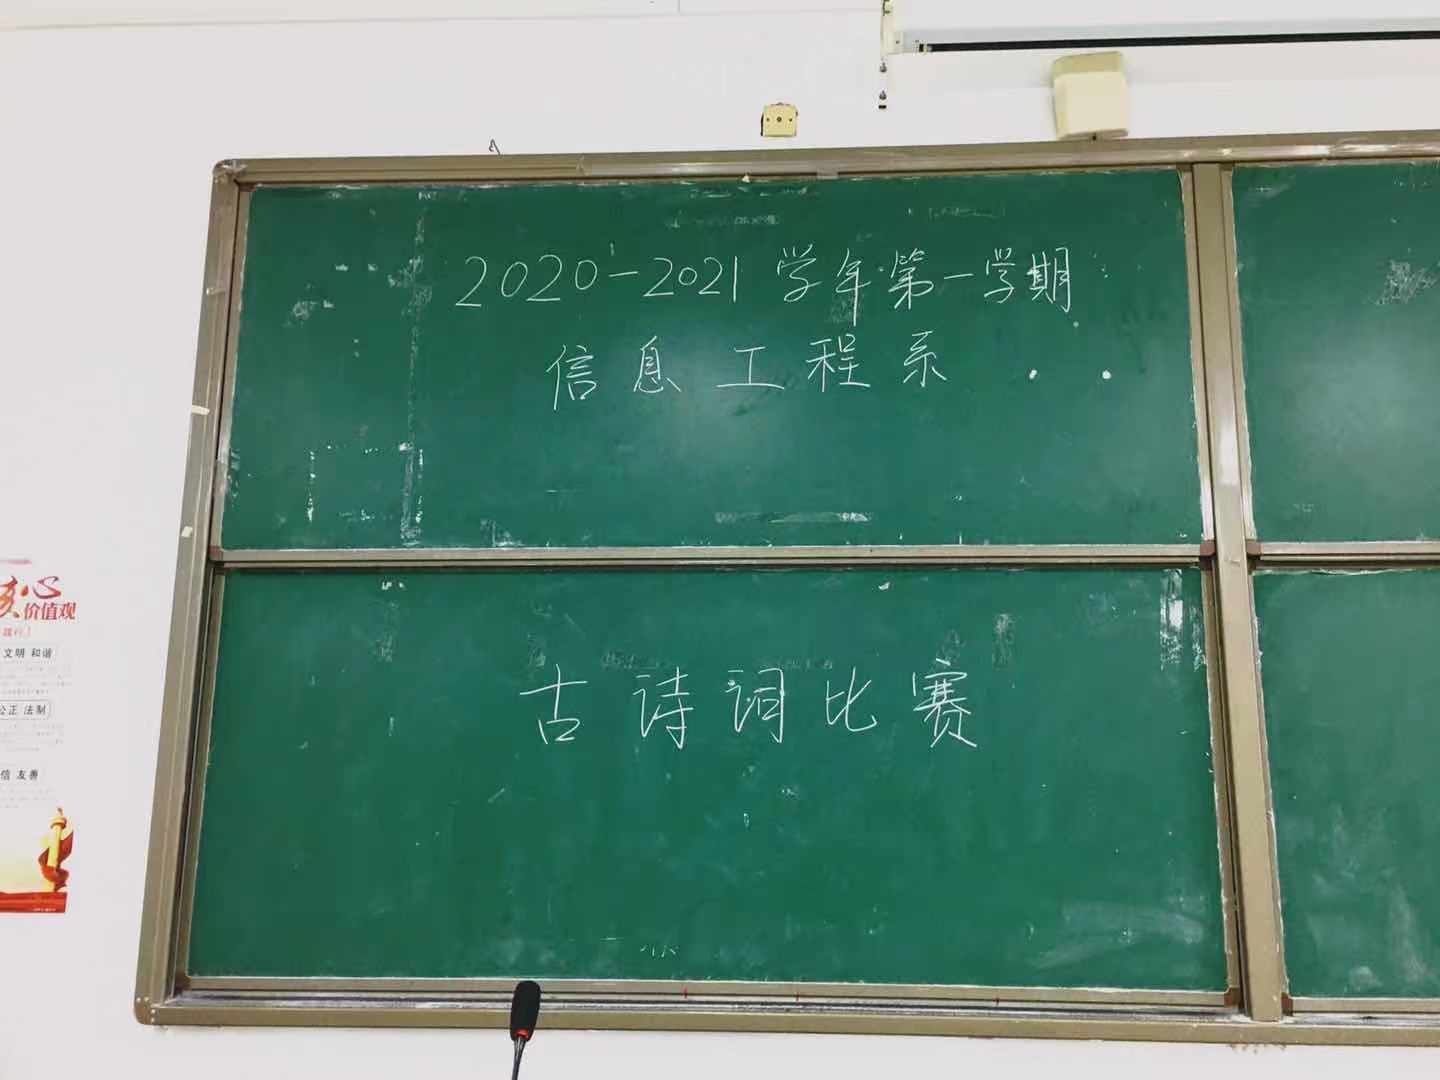 2020-2021学年第一学期
信息工程系
古诗词比赛
核心
价值观
践行
文明 和谐
公正 法制
信 友善